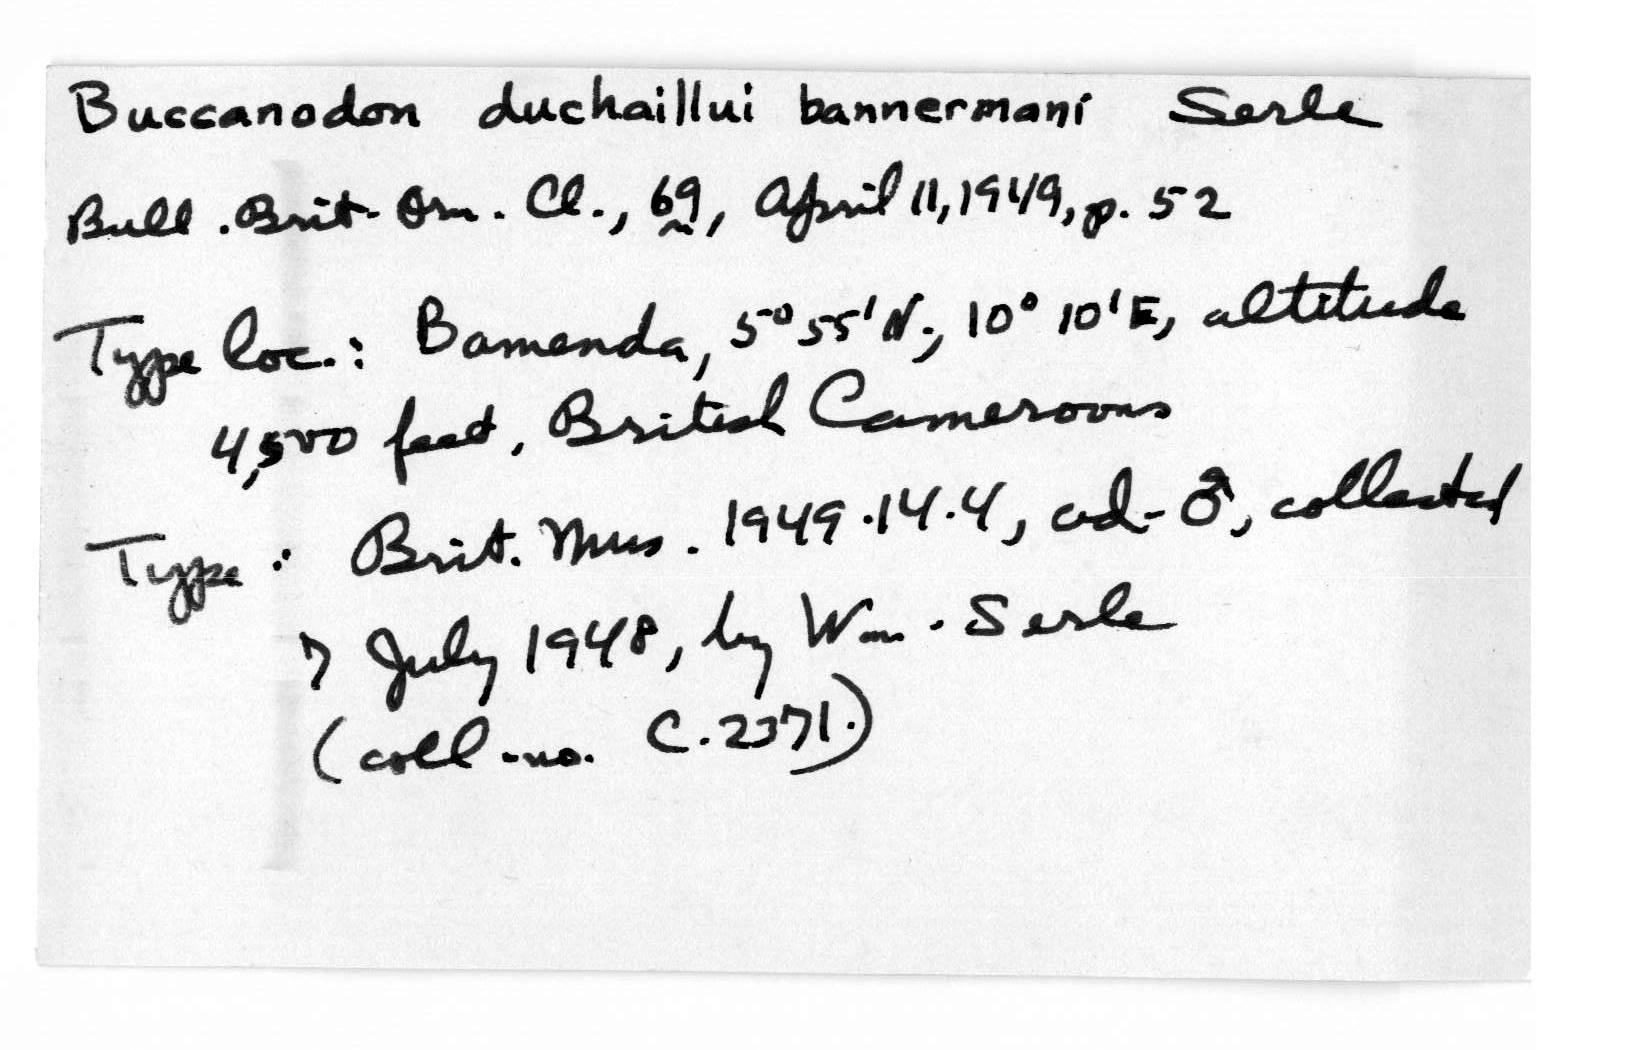 Buccanodon duchaillui bannermani Serle
Bull. Brit. Orn. Cl., 69, April 11, 1949, p. 52
Type loc.: Bamenda, 5° 55' N., 10° 10' E, altitude
4,500 feet, British Cameroons
Type: Brit. Mus. 1949.14.4, ad. ♂, collected
7 July 1948, by Wm. Serle
(coll. no. C.2371.)